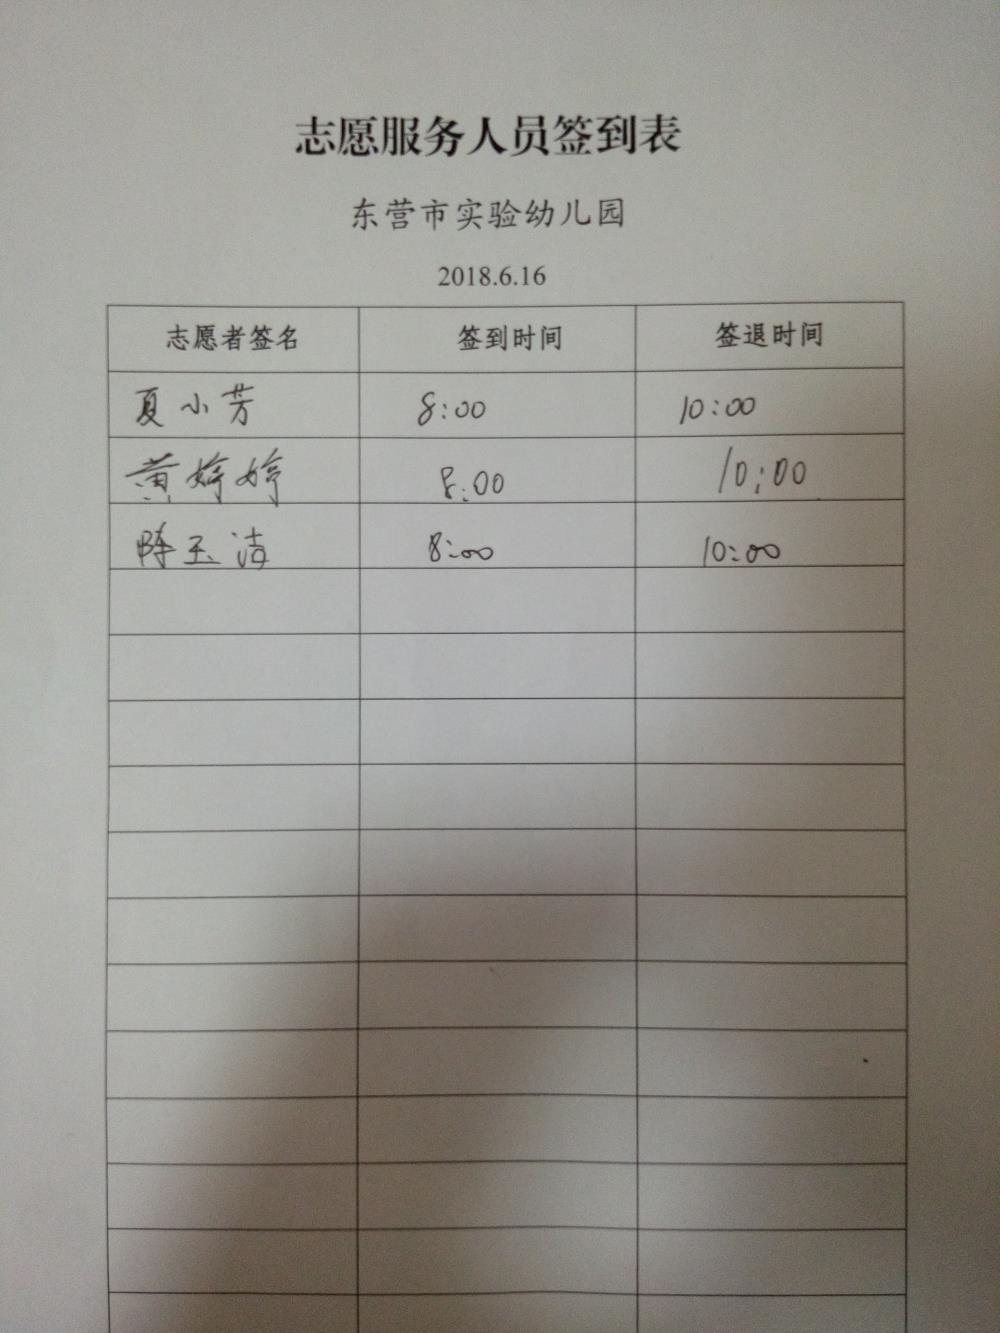 志愿服务人员签到表
东营市实验幼儿园
2018.6.16
志愿者签名 签到时间 签退时间
夏小芳 8:00 10:00
黄婷婷 8:00 10:00
陈玉洁 8:00 10:00